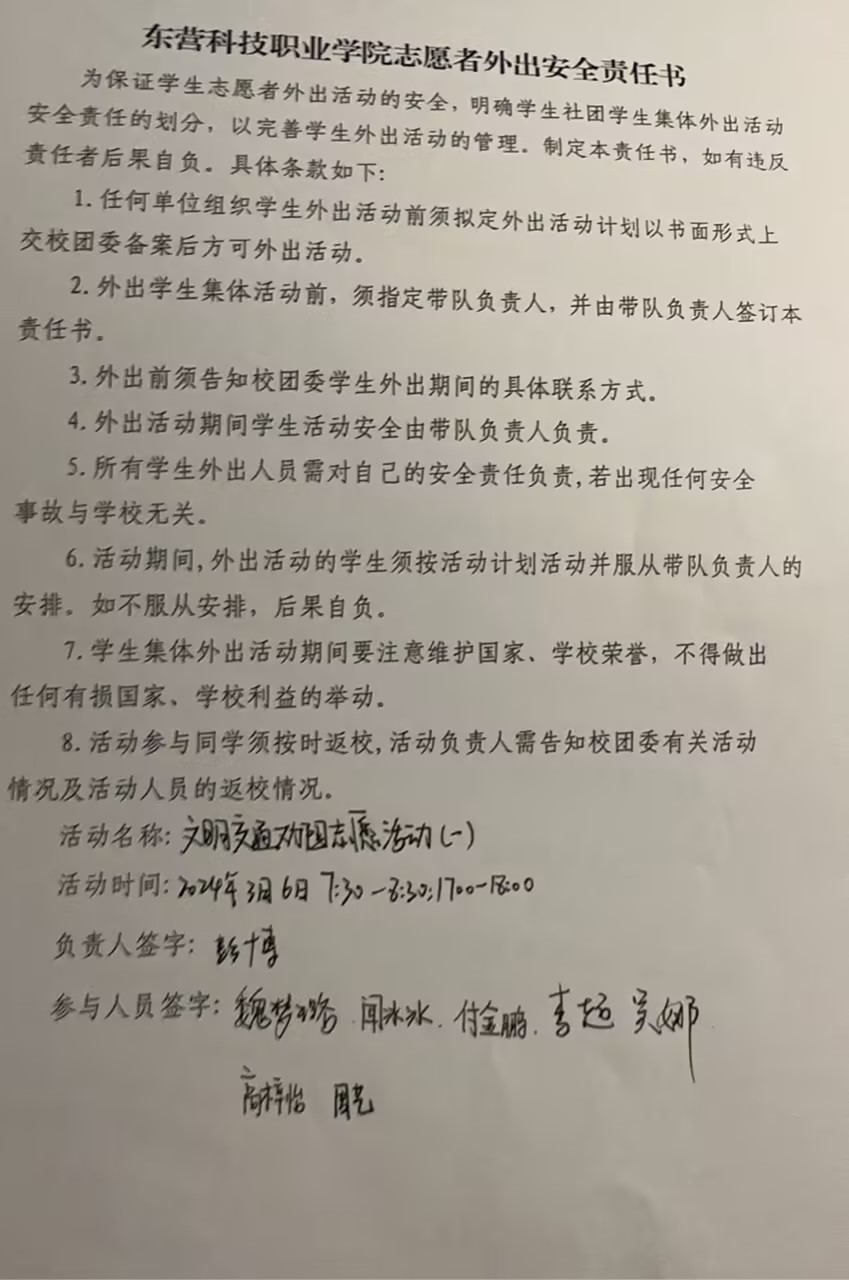 东营科技职业学院志愿者外出安全责任书
为保证学生志愿者外出活动的安全，明确学生社团学生集体外出活动
安全责任的划分，以完善学生外出活动的管理。制定本责任书，如有违反
责任者后果自负。具体条款如下:
1.任何单位组织学生外出活动前须拟定外出活动计划以书面形式上
交校团委备案后方可外出活动。
2.外出学生集体活动前，须指定带队负责人，并由带队负责人签订本
责任书。
3.外出前须告知校团委学生外出期间的具体联系方式。
4.外出活动期间学生活动安全由带队负责人负责。
5.所有学生外出人员需对自己的安全责任负责,若出现任何安全
事故与学校无关。
6.活动期间,外出活动的学生须按活动计划活动并服从带队负责人的
安排。如不服从安排，后果自负。
7.学生集体外出活动期间要注意维护国家、学校荣誉，不得做出
任何有损国家、学校利益的举动。
8.活动参与同学须按时返校,活动负责人需告知校团委有关活动
情况及活动人员的返校情况。
活动名称:文明交通劝阻志愿活动(一)
活动时间:2024年3月6日 7:30-8:30;1700-18:00
负责人签字:彭博
参与人员签字:魏梦璐.闻冰冰.付金鹏.李超 吴娜
高梓怡